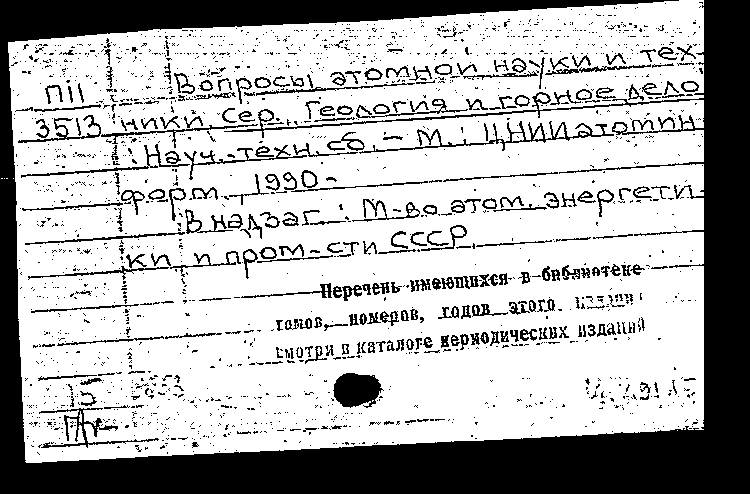 П11 Вопросы атомной науки и тех-
3513 ники. Сер. Геология и горное дело
: Науч.-техн. сб. – М. : ЦНИИатомин
форм, 1990 –
В надзаг. : М-во атом. энергети-
ки и пром-сти СССР.
Перечень имеющихся в библиотеке
томов, номеров, годов этого издания
смотри в каталоге периодических изданий
15